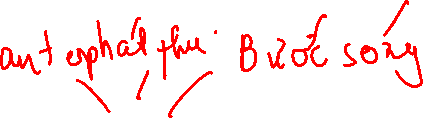 ant en phát thu Bước sóng